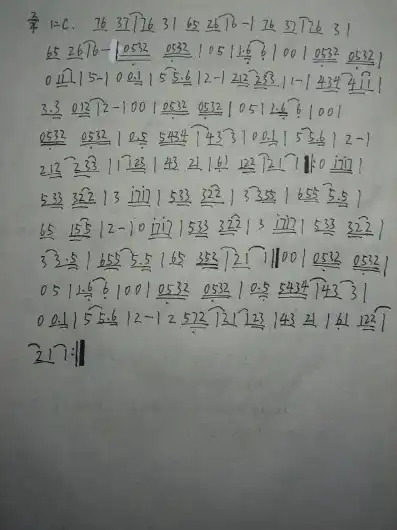 2/4 1=C. 76 37 | 76 3 | 65 26 | 6 - | 76 37 | 26 3 |
65 26 | 6 - | 0532 0532 | 0 5 | 1.6 6 | 0 0 | 0532 0532 |
0 11 | 5 - | 0 0.1 | 5 5.6 | 2 - | 212 233 | 1 - | 434 411 |
3.3 012 | 2 - | 0 0 | 0532 0532 | 0 5 | 1.6 6 | 0 0 |
0532 0532 | 0.5 5434 | 43 3 | 0 0.1 | 5 5.6 | 2 - |
212 233 | 1 123 | 43 21 | 61 122 | 21 1 | : 0 1717 |
533 322 | 3 1717 | 533 322 | 3 355 | 655 5.5 |
65 155 | 2 - | 0 1717 | 533 322 | 3 1717 | 533 322 |
3 3.5 | 655 5.5 | 65 352 | 21 1 | 0 0 | 0532 0532 |
0 5 | 1.6 6 | 0 0 | 0532 0532 | 0.5 5434 | 43 3 |
0 0.1 | 5 5.6 | 2 - | 2 572 | 21 123 | 43 21 | 61 122 |
21 1 :||